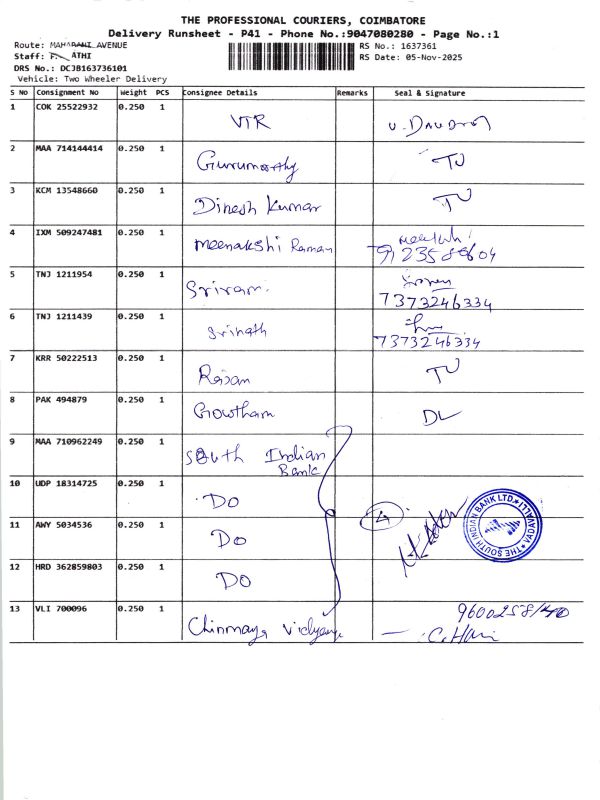 THE PROFESSIONAL COURIERS, COIMBATORE
Delivery Runsheet - P41 - Phone No.:9047080280 - Page No.:1
Route: MAHARANI AVENUE
RS No.: 1637361
Staff: ATHI
RS Date: 05-Nov-2025
DRS No.: DCJB163736101
Vehicle: Two Wheeler Delivery
S No Consignment No Weight PCS Consignee Details Remarks Seal & Signature
1 COK 25522932 0.250 1 VTR
2 MAA 714144414 0.250 1 Gurumoorthy TU
3 KCM 13548660 0.250 1 Dinesh Kumar TU
4 IXM 509247481 0.250 1 Meenakshi Raman
5 TNJ 1211954 0.250 1 Sriram. 7373246334
6 TNJ 1211439 0.250 1 Srinath 7373246334
7 KRR 50222513 0.250 1 Rajan TU
8 PAK 494879 0.250 1 Gowtham DL
9 MAA 710962249 0.250 1 South Indian
Bank
10 UDP 18314725 0.250 1 DO
11 AWY 5034536 0.250 1 DO 4
THE SOUTH INDIAN BANK LTD. VADAVALLI
12 HRD 362859803 0.250 1 DO
13 VLI 700096 0.250 1 Chinmaya
C. Hari